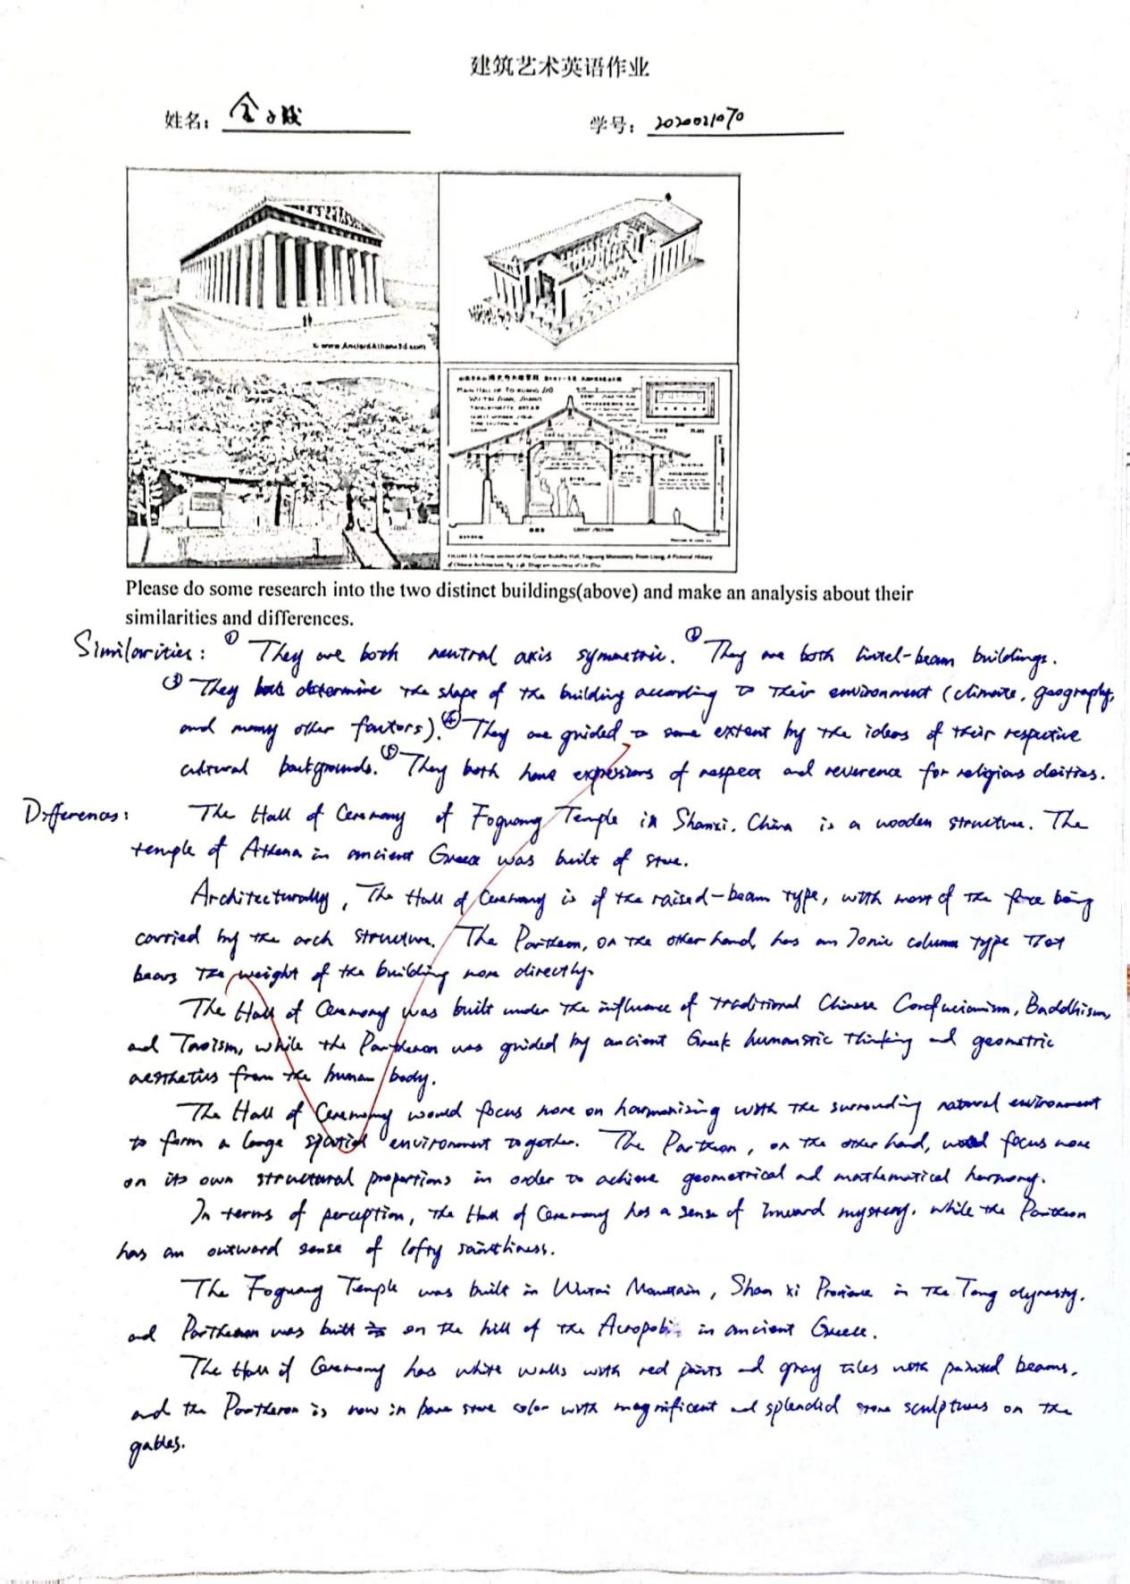 建筑艺术英语作业
姓名：金
学号：2020021070
© www.AncientAthens3d.com
Please do some research into the two distinct buildings(above) and make an analysis about their
similarities and differences.
Similarities: ① They are both neutral axis symmetric. ② They are both lintel-beam buildings.
③ They both determine the shape of the building according to their environment (climate, geography,
and many other factors). ④ They are guided to some extent by the ideas of their respective
cultural backgrounds. ⑤ They both have expressions of respect and reverence for religious deities.
Differences: The Hall of Ceremony of Foguang Temple in Shanxi, China is a wooden structure. The
temple of Athena in ancient Greece was built of stone.
Architecturally, The Hall of Ceremony is of the raised-beam type, with most of the force being
carried by the arch structure. The Partheon, on the other hand, has an Ionic column type that
bears the weight of the building more directly.
The Hall of Ceremony was built under the influence of traditional Chinese Confucianism, Buddhism,
and Taoism, while the Parthenon was guided by ancient Greek humanistic thinking and geometric
aesthetics from the human body.
The Hall of Ceremony would focus more on harmonising with the surrounding natural environment
to form a large spatial environment together. The Partheon, on the other hand, would focus more
on its own structural proportions in order to achieve geometrical and mathematical harmony.
In terms of perception, the Hall of Ceremony has a sense of inward mystery, while the Partheon
has an outward sense of lofty saintliness.
The Foguang Temple was built in Wutai Mountain, Shan xi Province in the Tang dynasty,
and Parthenon was built on the hill of the Acropolis in ancient Greece.
The Hall of Ceremony has white walls with red paints and gray tiles with painted beams,
and the Partheron is now in bare stone color with magnificent and splendid stone sculptures on the
gables.